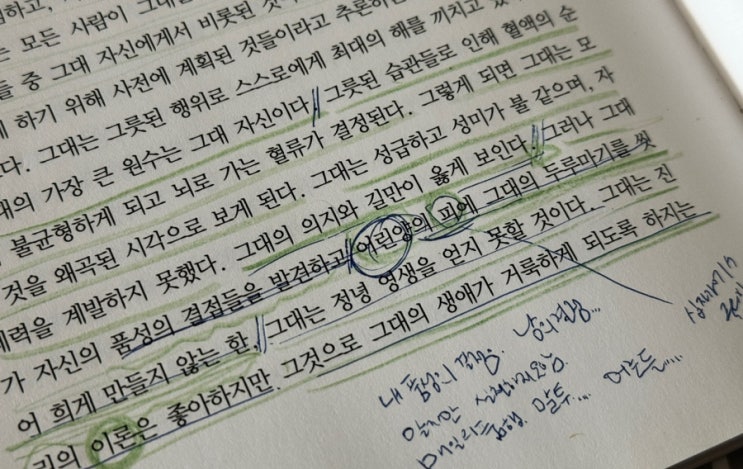 험하고,
는 모든 사람이 그대
들 중 그대 자신에게서 비롯된 것
게 하기 위해 사전에 계획된 것들이라고 추론하
다. 그대는 그릇된 행위로 스스로에게 최대의 해를 끼치고 있
대의 가장 큰 원수는 그대 자신이다. 그릇된 습관들로 인해 혈액의 순
불균형하게 되고 뇌로 가는 혈류가 결정된다. 그렇게 되면 그대는 모
것을 왜곡된 시각으로 보게 된다. 그대는 성급하고 성미가 불 같으며, 자
그대의 의지와 길만이 옳게 보인다. 그러나 그대
제력을 계발하지 못했다.
가 자신의 품성의 결점들을 발견하고 어린양의 피에 그대의 두루마기를 씻
어 희게 만들지 않는 한, 그대는 정녕 영생을 얻지 못할 것이다. 그대는 진
리의 이론은 좋아하지만, 그것으로 그대의 생애가 거룩하게 되도록 하지는
내 품성의 결점. 남의 결점...
말투...